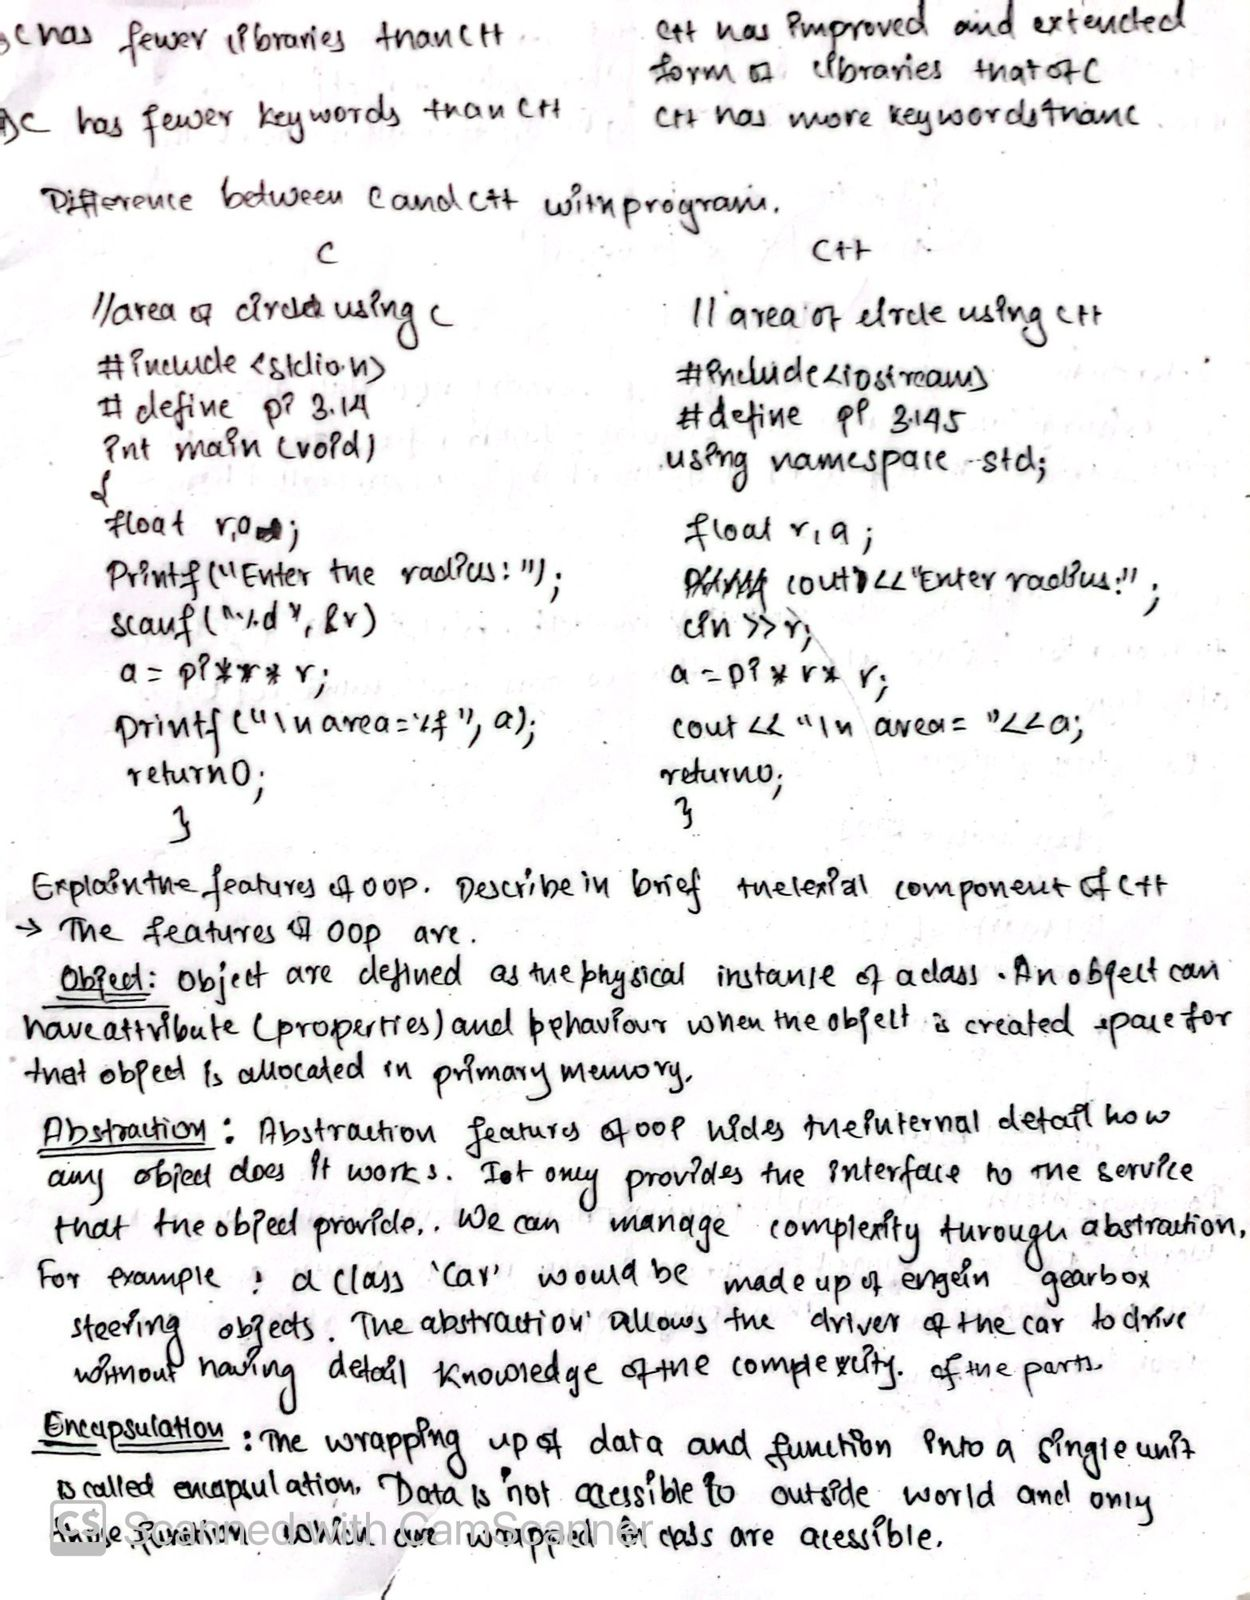 C has fewer libraries than C++
C++ has improved and extended
form of libraries that of C
C has fewer keywords than C++
C++ has more keywords than C
Difference between C and C++ with program.
C
C++
//area of circle using C
#include <stdio.h>
# define pi 3.14
int main (void)
{
float r,a;
Printf ("Enter the radius: ");
scanf ("%d", &r)
a = pi**r* r;
printf ("\n area=%f", a);
return 0;
}
// area of circle using C++
#include<iostream>
#define pi 3.145
using namespace std;
float r, a;
cout << "Enter radius:";
cin >> r;
a = pi * r* r;
cout << "\n area= "<<a;
return 0;
}
Explain the features of OOP. Describe in brief the lexial component of C++
→ The features of OOP are.
Object: Object are defined as the physical instanse of a class. An object can
have attribute (properties) and behaviour when the object is created space for
that object is allocated in primary memory.
Abstraction: Abstraction features of OOP hides the internal detail how
any object does it works. Iot only provides the interface to the service
that the object provide.. We can manage complexity through abstraction.
For example : a class 'Car' would be made up of engein gearbox
steering objects. The abstraction allows the driver of the car to drive
without having detail knowledge of the complexcity. of the parts.
Encapsulation : The wrapping up of data and function into a single unit
is called encapsulation. Data is not acessible to outside world and only
those function which are wrapped in class are acessible.
CS Scanned with CamScanner